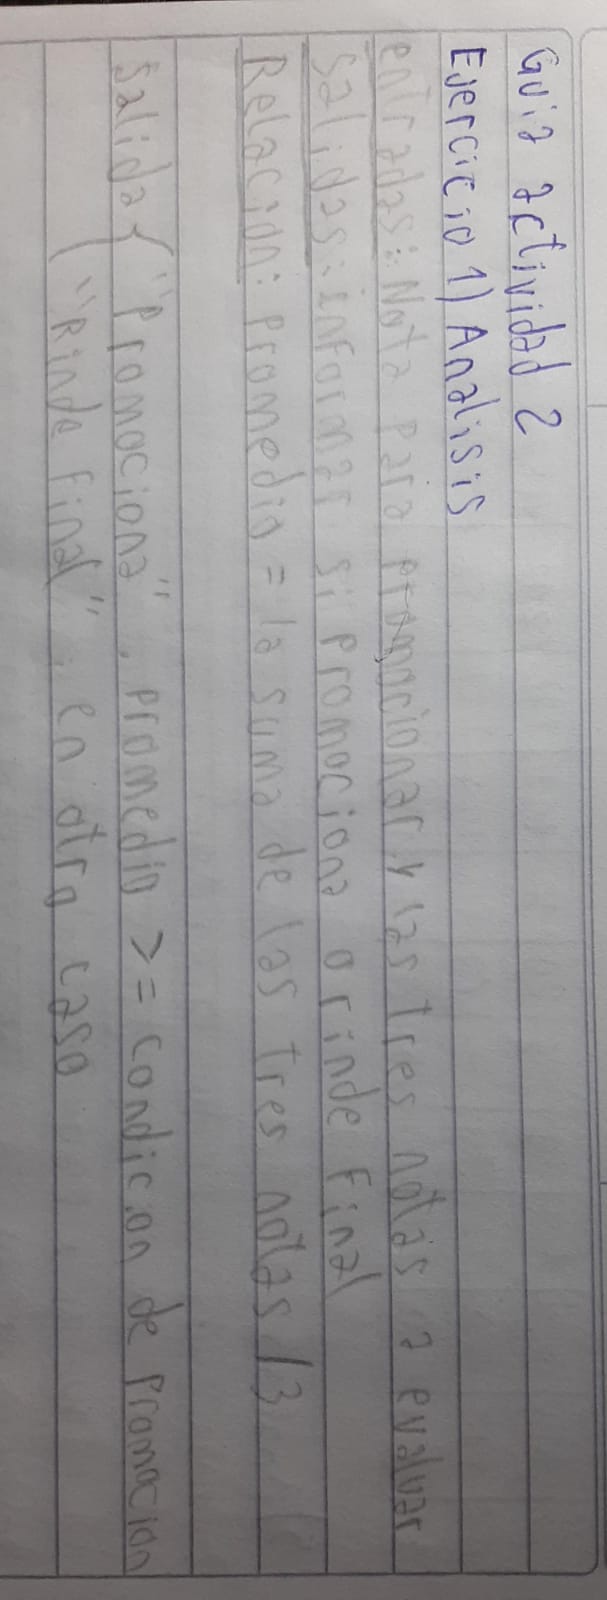 Guia actividad 2
Ejercicio 1) Analisis
entradas: Nota para promocionar y las tres notas a evaluar
Salidas: informar si promociona o rinde final
Relacion: promedio = la suma de las tres notas /3
Salida { "Promociona", promedio >= condicion de promocion
"Rinde final", en otro caso